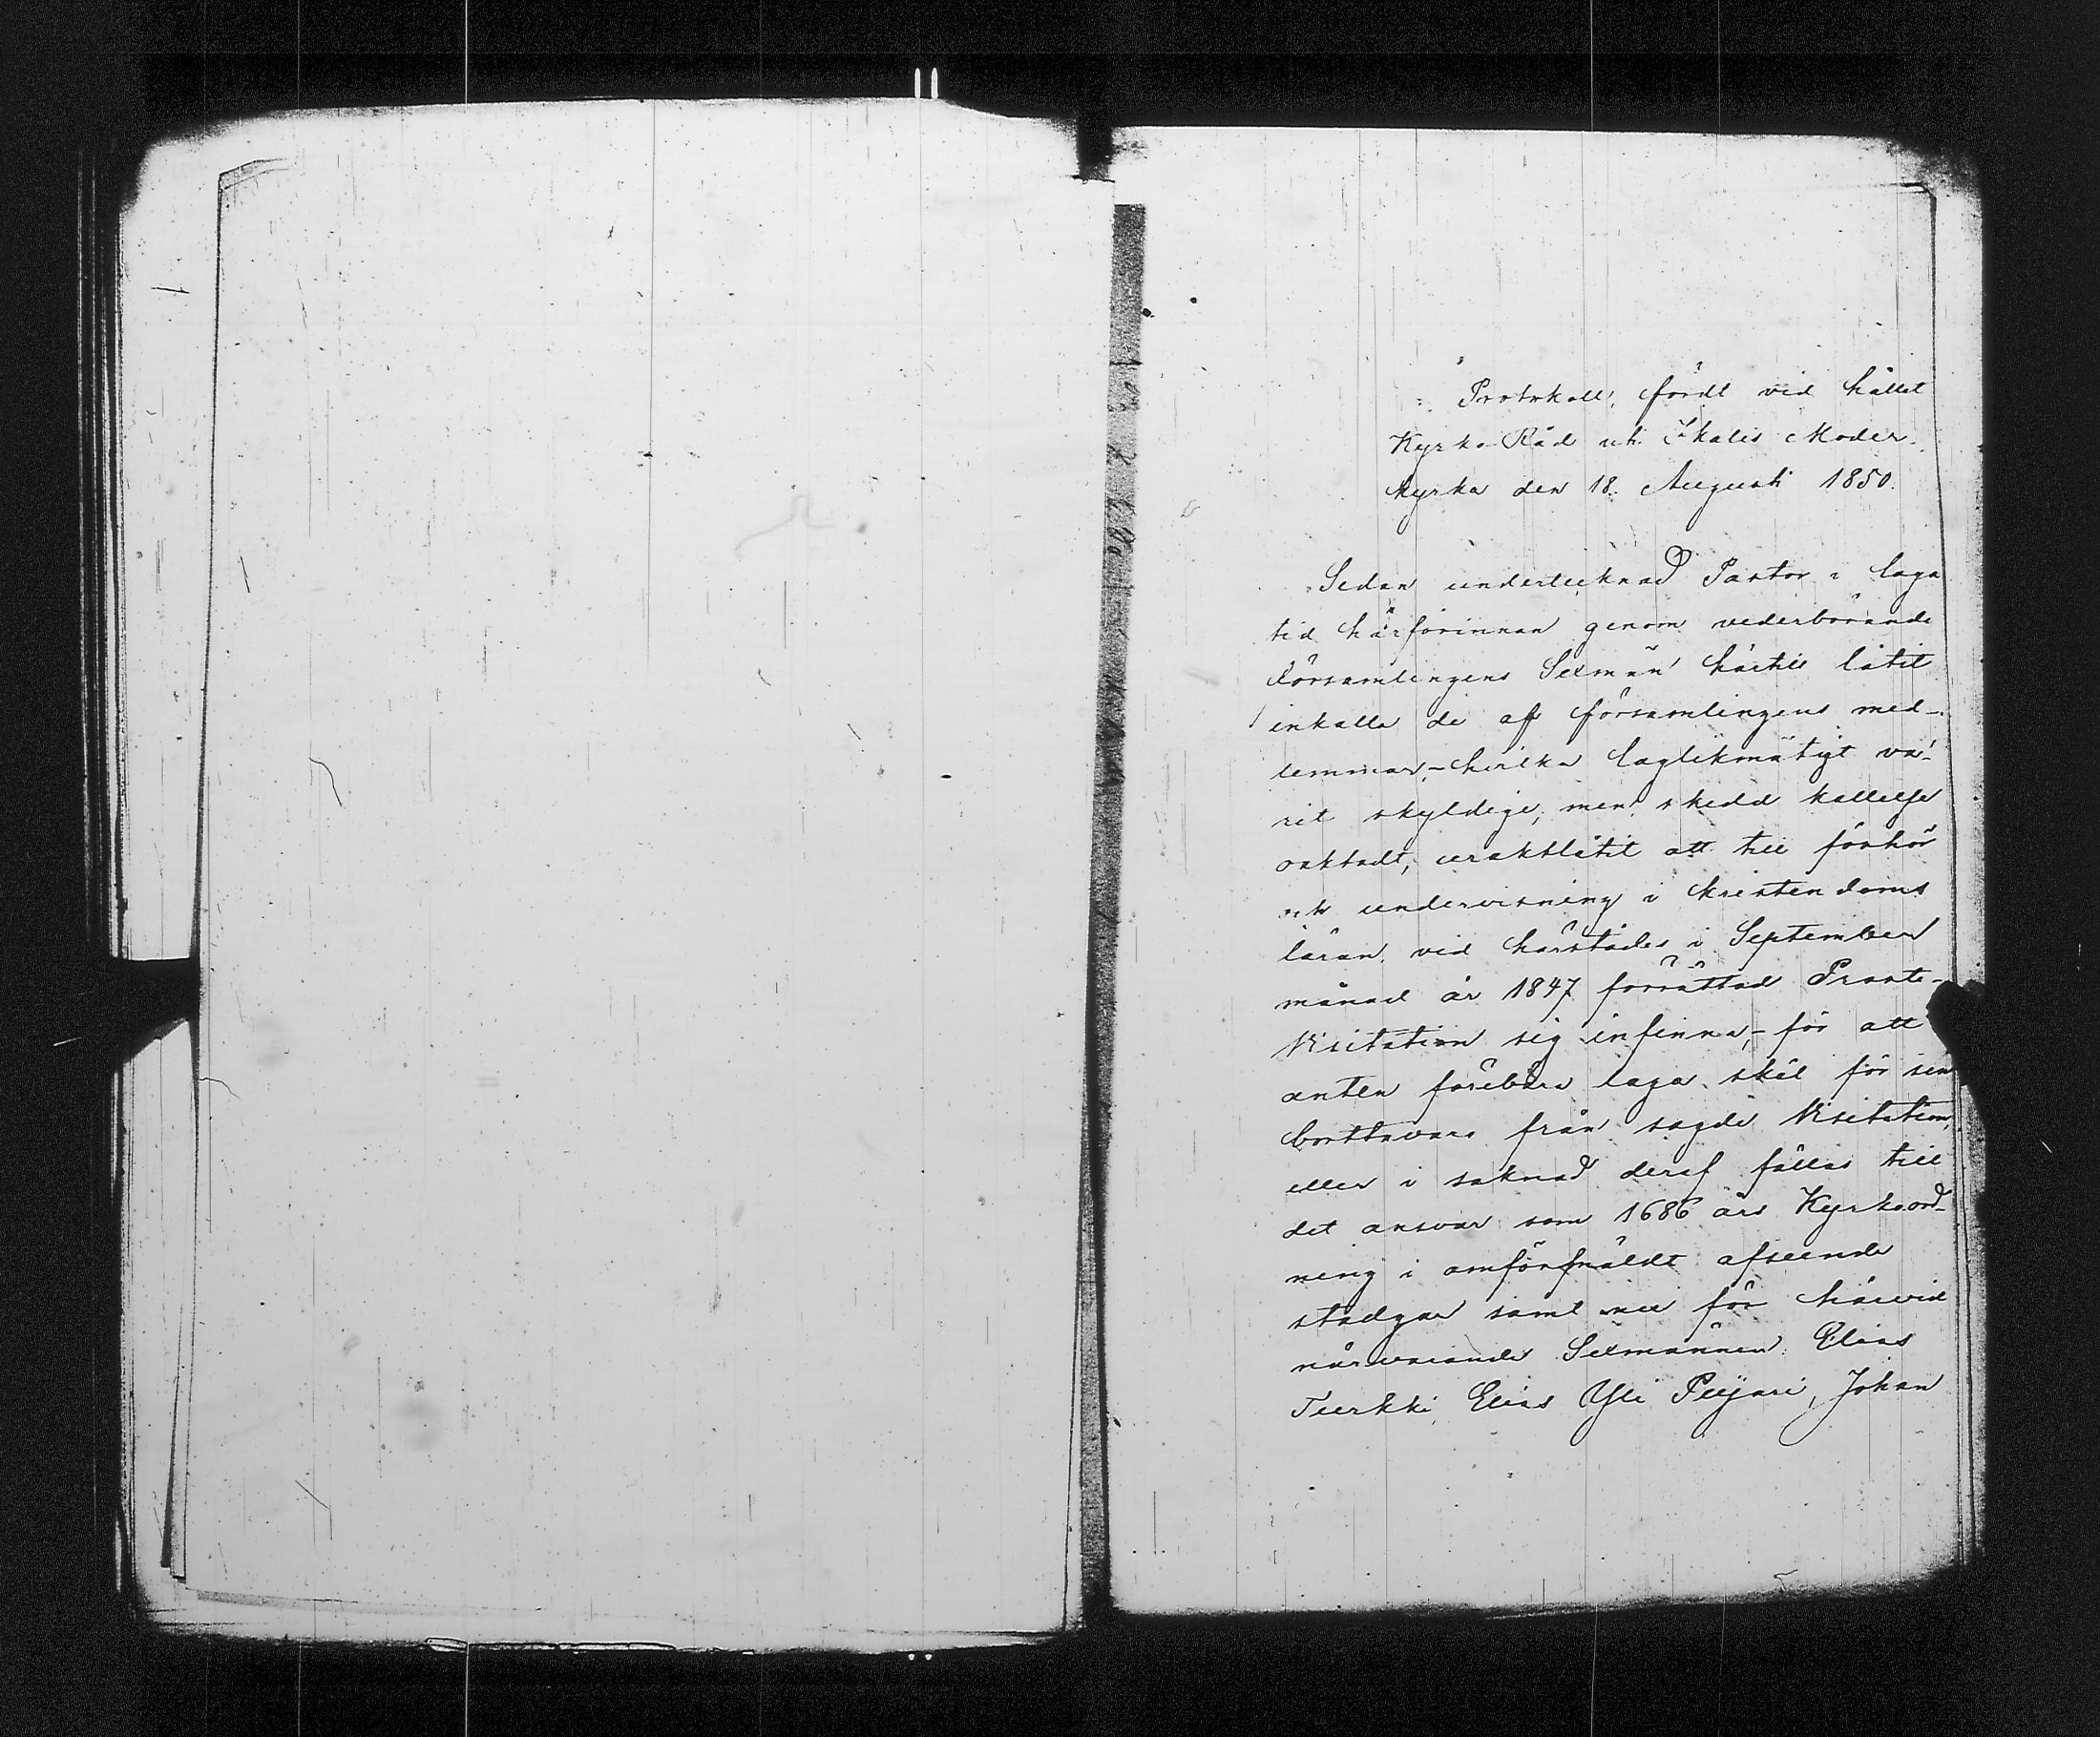 Protokoll, fördt vid hållet
Kyrko-Råd uti Ikalis Moder-
kyrka den 18. Augusti 1850.
Sedan undertecknad Pastor i laga
tid härförinnan genom vederbörande
Församlingens Sexmän härtill låtit
inkalla de af församlingens med-
lemmar, – hvilka laglikmätigt va-
rit skyldige, men skedd kallelse
oaktadt, uraktlåtit att till förhör
och undervisning i kristendoms
läran, vid härstädes i September
månad år 1847 förrättad Proste-
Visitation sig infinna, – för att
anten förebära laga skäl för sin
bortovaro från sagde Visitation,
eller i saknad deraf fällas till
det ansvar som 1686 års Kyrkoord-
ning i omförmäldt afseende
stadgar samt nu för härvid
närvarande Sexmännen Elias
Turkki, Elias Yli Puijari, Johan